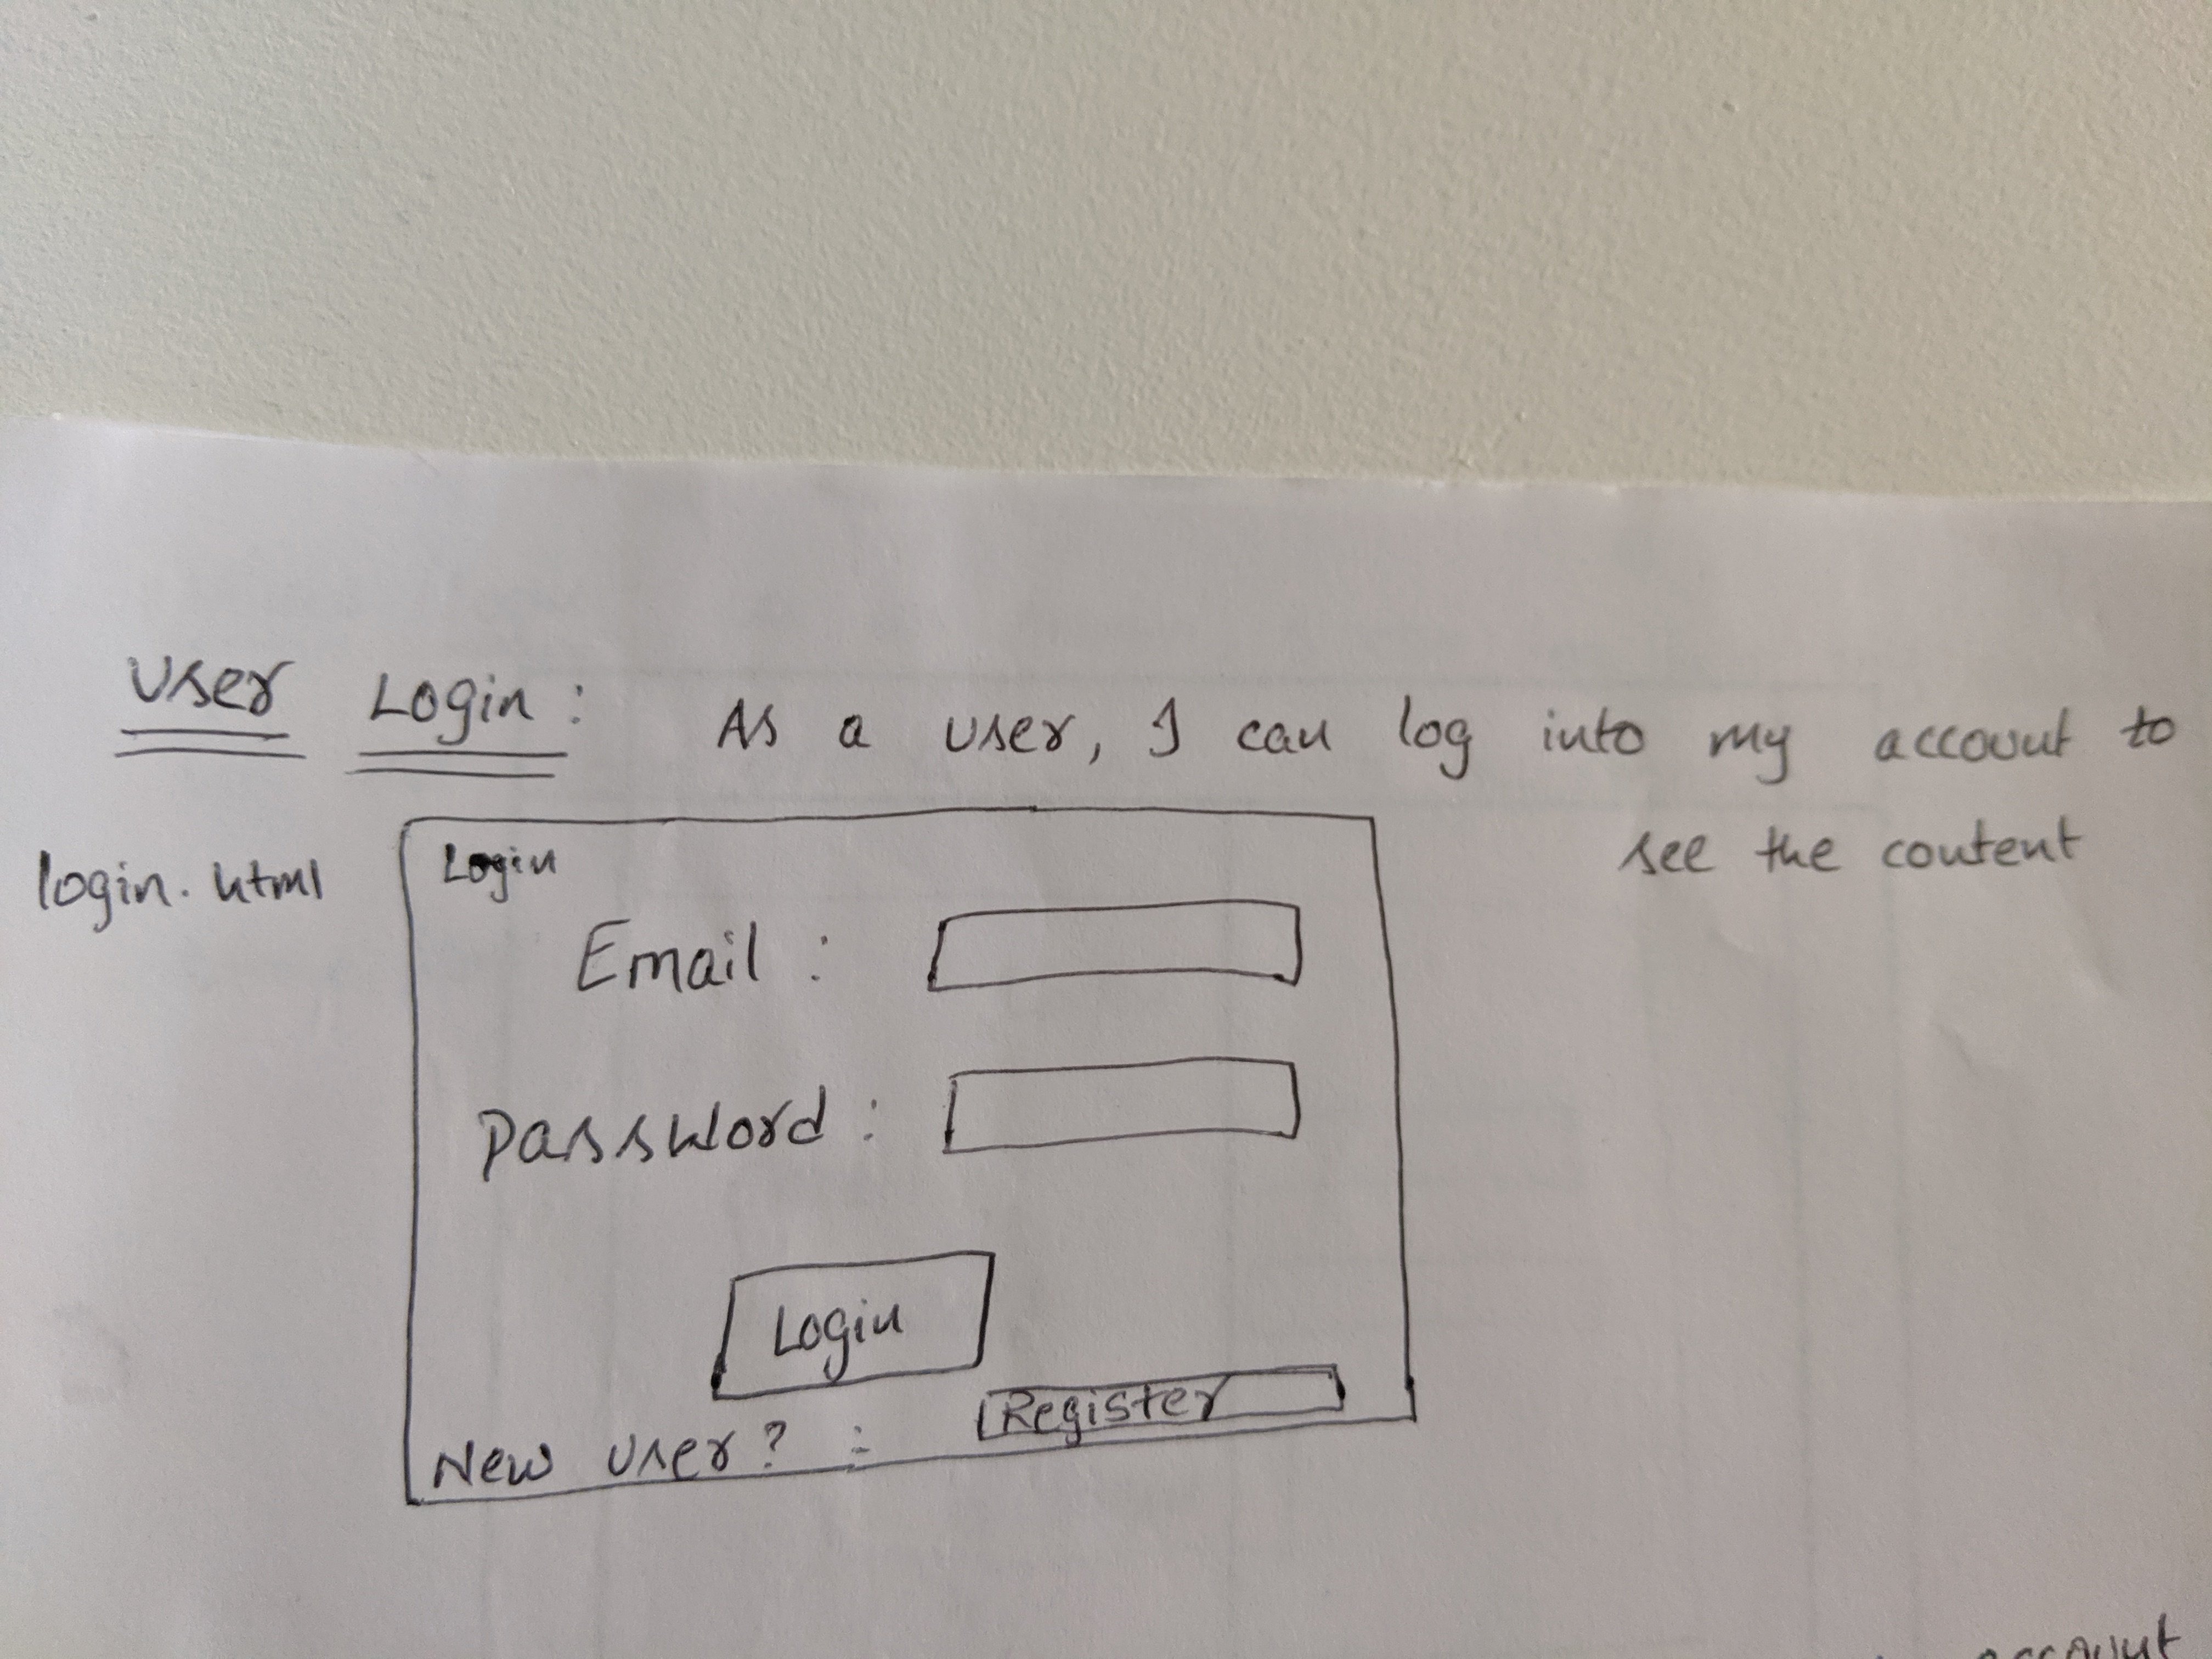 User Login : As a user, I can log into my account to
see the content
login.html
Login
Email :
Password :
Login
New user? : Register
account